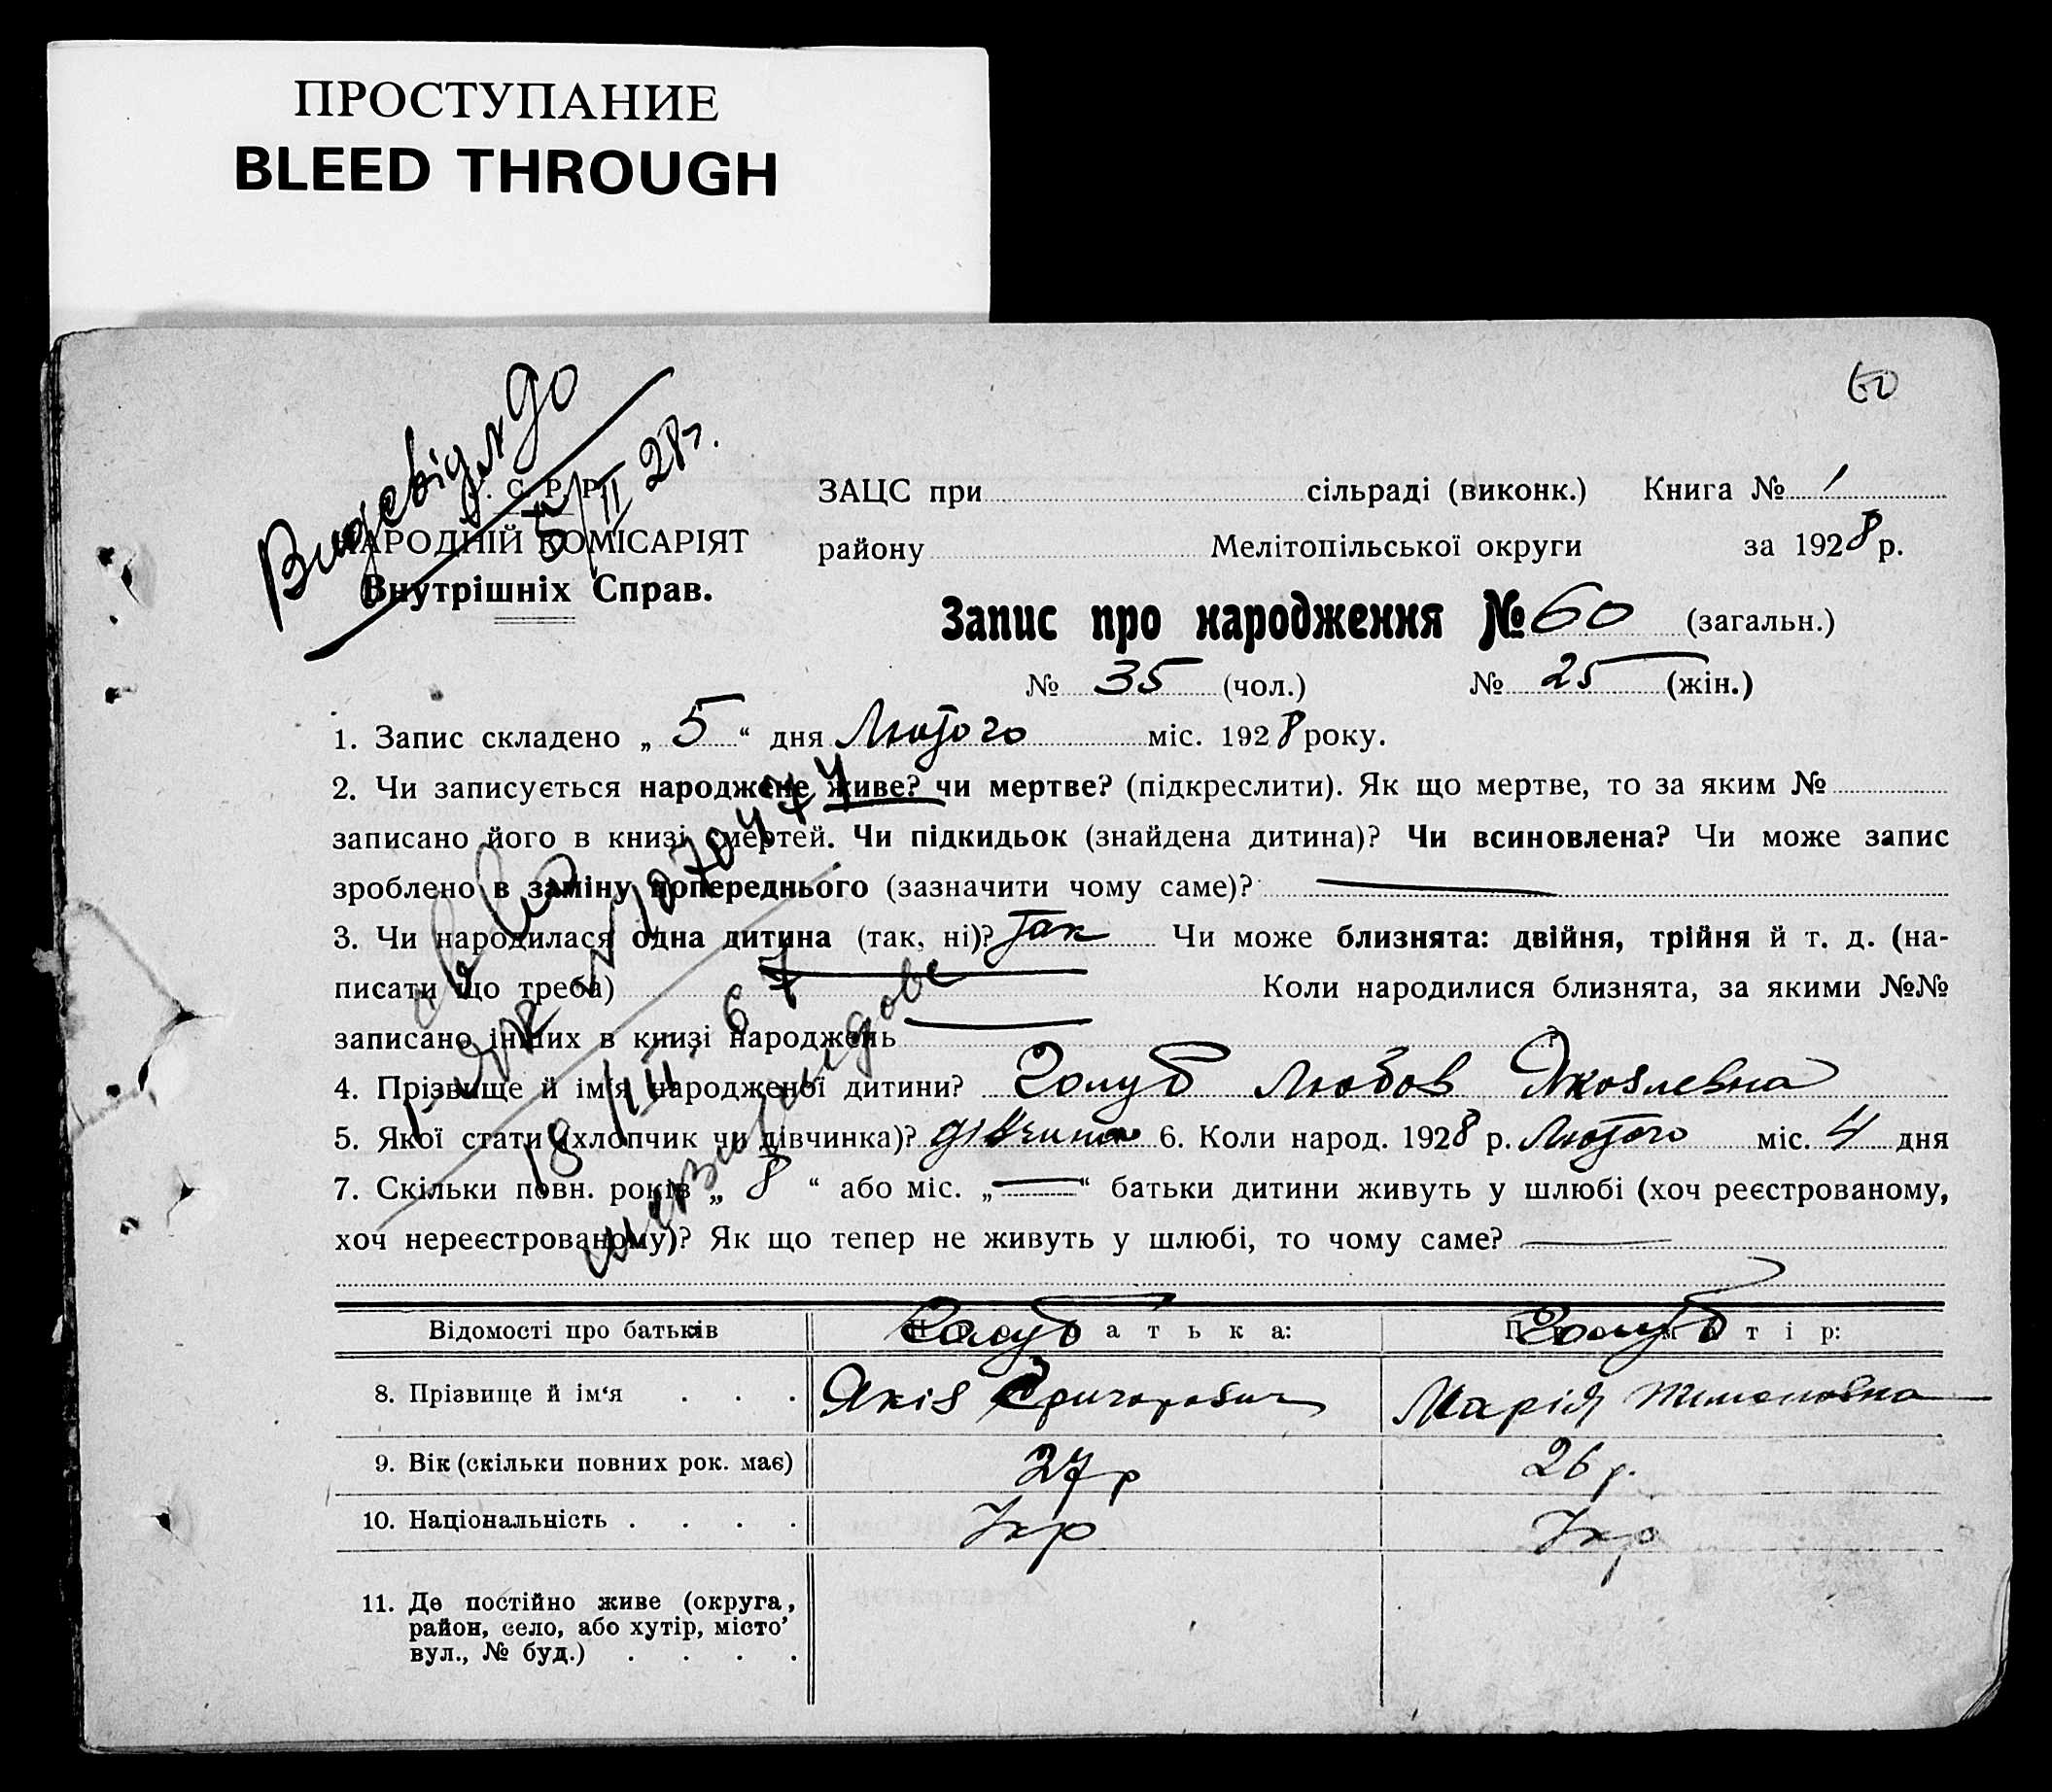 ПРОСТУПАНИЕ
BLEED THROUGH
60
5/II 28г.
С. Р. Р.
НАРОДНІЙ КОМІСАРІЯТ
Внутрішніх Справ.
ЗАЦС при сільраді (виконк.) Книга № 1
району Мелітопільської округи за 1928 р.
Запис про народження № 60 (загальн.)
№ 35 (чол.) № 25 (жін.)
1. Запис складено „ 5 “ дня Лютого міс. 1928 року.
2. Чи записується народжене живе? чи мертве? (підкреслити). Як що мертве, то за яким №
записано його в книзі смертей. Чи підкидьок (знайдена дитина)? Чи всиновлена? Чи може запис
зроблено в заміну попереднього (зазначити чому саме)? —
3. Чи народилася одна дитина (так, ні)? Так Чи може близнята: двійня, трійня й т. д. (на-
писати що треба) — Коли народилися близнята, за якими №№
записано інших в книзі народжень — ?
4. Прізвище й ім'я народженої дитини? Голуб Любов Яковлевна
5. Якої стати (хлопчик чи дівчинка)? дівчина 6. Коли народ. 1928 р. Лютого міс. 4 дня
7. Скільки повн. років „ 8 “ або міс. „ — “ батьки дитини живуть у шлюбі (хоч реєстрованому,
хоч нереєстрованому)? Як що тепер не живуть у шлюбі, то чому саме? —
Відомості про батьків Про батька: Про матір:
Голуб Голуб
8. Прізвище й ім‘я . . . Яків Григорович Марія Тимоновна
9. Вік (скільки повних рок. має) 27 р 26 р.
10. Національність . . . . Укр Укр
11. Де постійно живе (округа,
район, село, або хутір, місто’
вул., № буд.) . . . .